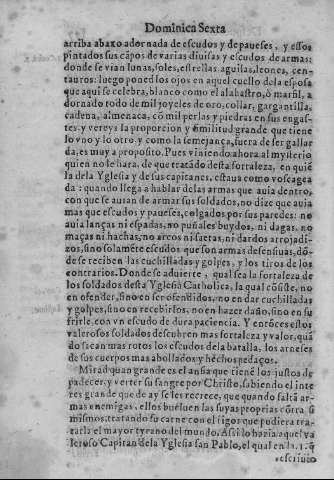 Dominica Sexta
arriba abaxo adornada de escudos y de paueses, y essos
pintados sus cãpos de varias diuisas y escudos de armas:
donde se vian lunas, soles, estrellas, aguilas, leones, cen-
tauros: luego poned los ojos en aquel cuello dela esposa
que aqui se celebra, blanco como el alabastro, ô marfil, a
dornado todo de mil joyeles de oro, collar, gargantilla,
cadena, almenaca, cõ mil perlas y piedras en sus engas-
tes, y vereys la proporcion y similitud grande que tiene
lo vno y lo otro, y como la semejança, fuera de ser gallar
da, es muy a proposito. Pues viniendo ahora al mysterio
quien no le hara, de que tratãdo desta fortaleza, en quiẽ
la dela Yglesia y de sus capitanes, estaua como voseagea
da: quando llega a hablar de las armas que auia dentro,
con que se auian de armar sus soldados, no dize que auia
mas que escudos y paueses, colgados por sus paredes: no
auia lanças ni espadas, no puñales buydos, ni dagas, no
maças ni hachas, no arcos ni saetas, ni dardos arrojadi-
zos, sino solamẽte escudos que son armas defensiuas, dõ-
de se reciben las cuchilladas y golpes, y los tiros de los
contrarios. Donde se aduierte, qual sea la fortaleza de
los soldados desta Yglesia Catholica, la qual cõsiste, no
en ofender, sino en ser ofendidos, no en dar cuchilladas
y golpes, sino en recebirlos, no en hazer daño, sino en su
frirle con vn escudo de dura paciencia. Y entõces estos
valerosos soldados descubren mas fortaleza y valor, quã
do sacan mas rotos los escudos dela batalla, los arneses
de sus cuerpos mas abollados y hechos pedaços.
Mirad quan grande es el ansia que tiene los justos de
padecer, y verter su sangre por Christo, sabiendo el inte
res grande que de ay se les recrece, que quando faltã ar-
mas enemigas, ellos bueluen las suyas proprias cõtra si
mismos, tratando su carne con el rigor que pudiera tra-
tarla el mayor tyrano del mundo. Assi lo hazia aquel va
leroso Capitan dela Yglesia san Pablo, el qual en la 1. q̃
escriuio